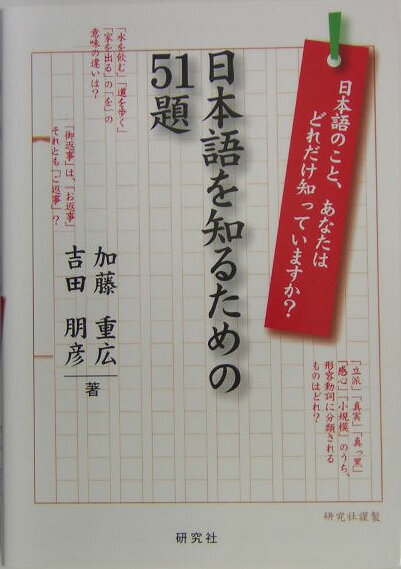 日本語のこと、あなたは
どれだけ知っていますか?
「水を飲む」「道を歩く」
「家を出る」の「を」の
意味の違いは?
日本語を知るための
51題
「御返事」は、「お返事」
それとも「ご返事」?
加藤 重広
吉田 朋彦
著
「立派」「真実」「真っ黒」
「感心」「小規模」のうち、
形容動詞に分類される
ものはどれ?
研究社謹製
研究社